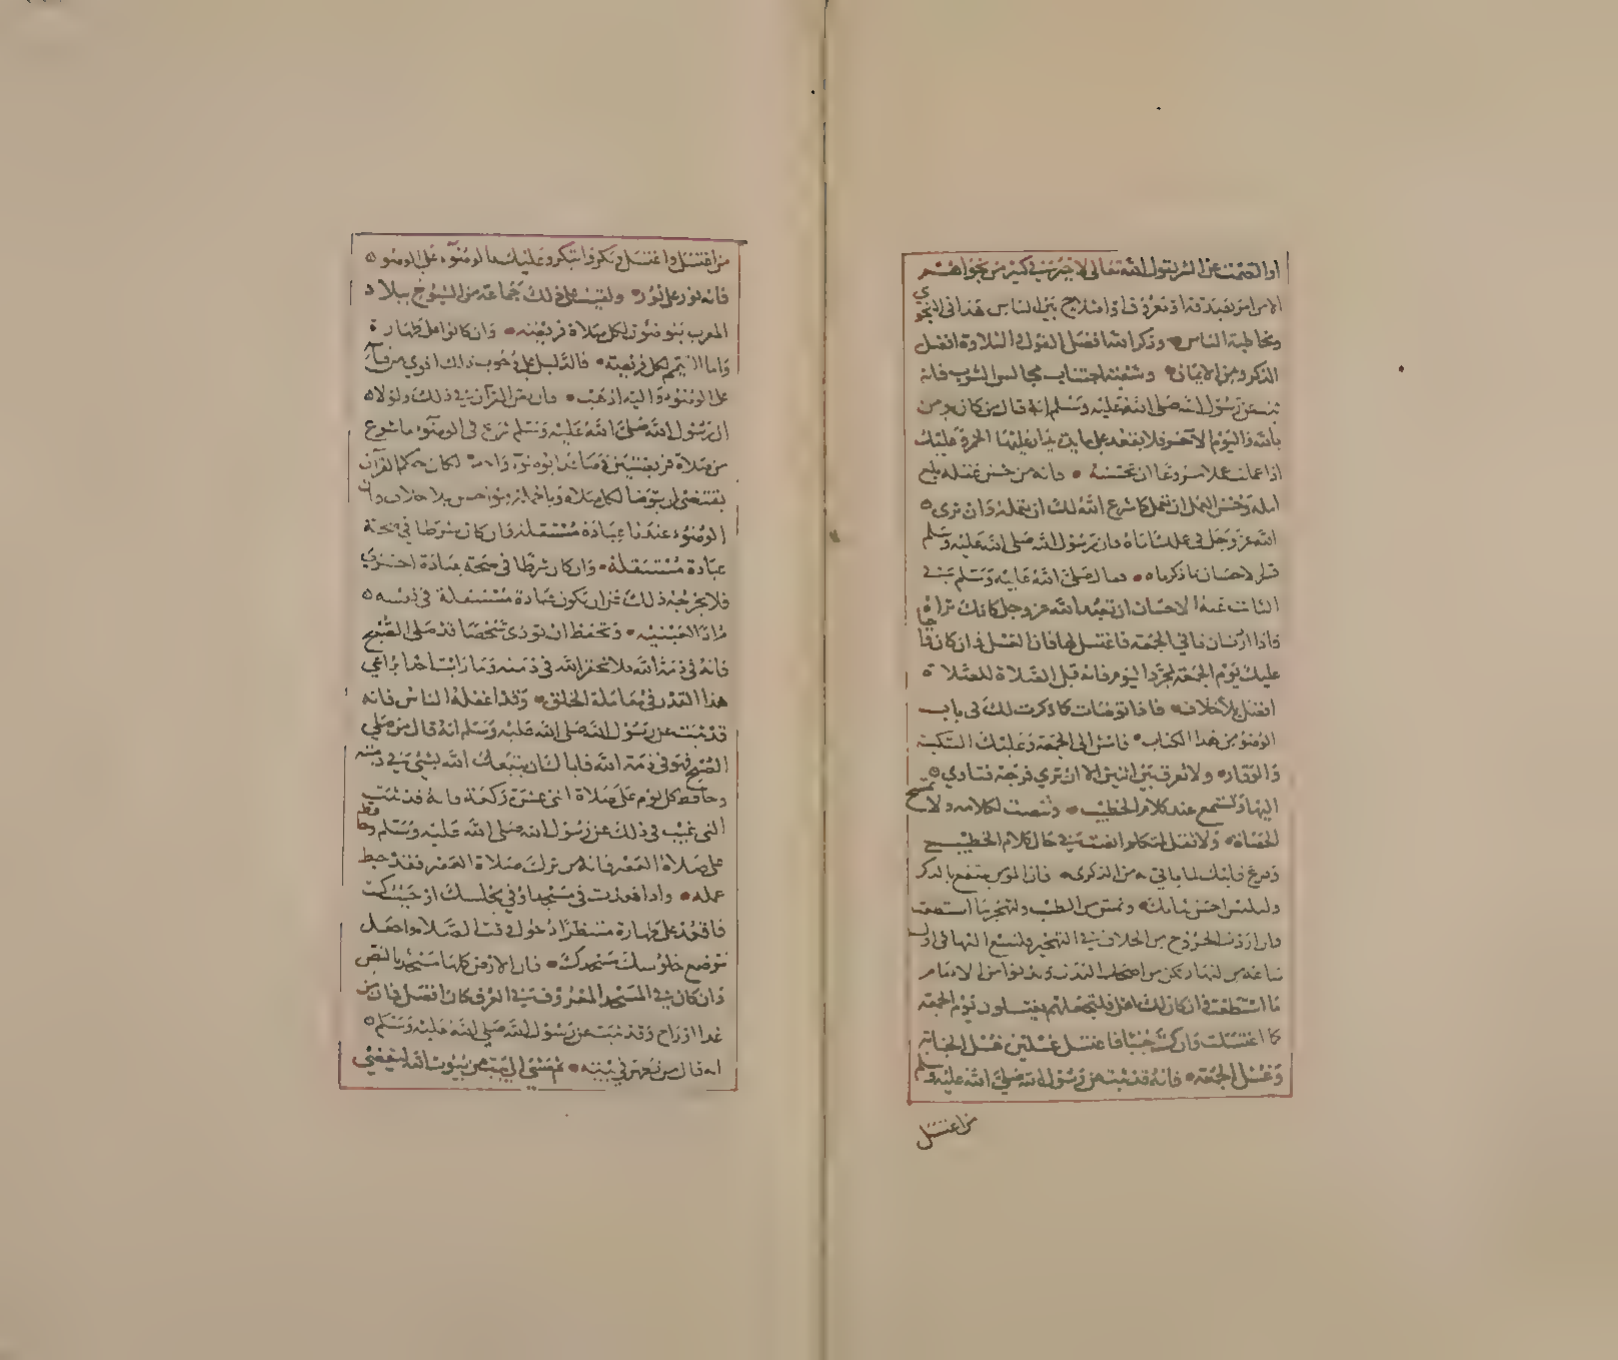 او الصمت عن الشر يقول الله تعالى لا خير في كثير من نجواهم
الا من امر بصدقة او معروف او اصلاح بين الناس هذا في النجوي
ومخاطبة الناس وذكر الله افضل القول والتلاوة افضل
الذكر ومن الايمان وشعبه اجتناب مجالس الشرب فانه
ثبت عن رسول الله صلى الله عليه وسلم انه قال من كان يومن
بالله واليوم الاخر فلا يقعد على مايدة يدار عليها الخمر وعليك
اذا عملت عملا مشروعا ان تحسنه فانه من حسن عمله بلغ
امله وحسن العمل ان تعمل كما شرع الله لك ان تعمله وان ترى
الله عز وجل في عملك اياه فان رسول الله صلى الله عليه وسلم
فسر الاحسان بما ذكرناه فقال صلى الله عليه وسلم في
الثابت عنه الاحسان ان تعبد الله عز وجل كانك تراه
واذا اردت ان تاتي الجمعة فاغتسل لها فان الغسل وان كان واجبا
عليك يوم الجمعة لمجرد اليوم فانه قبل الصلاة للصلاة
افضل بلا خلاف فاذا توضات كما ذكرت لك في باب
الوضوء من هذا الكتاب فامش الى الجمعة وعليك السكينة
والوقار ولا تفرق بين اثنين الا ان تري فرجة فتاوي
اليها ولتستمع عند كلام الخطيب وتنصت لكلامه ولا تمسح
الحصاة ولا تقل لمتكلم انصت في حال كلام الخطيب
وفرغ قلبك لما ياتي به من الذكرى فان المومن ينتفع بالذكر
ولتلبس احسن ثيابك وتمس من الطيب ولتهجر ما استطعت
فان اردت الخروج من الخلاف في التهجير فلتسع اليها في اول
ساعة من النهار تكن من اصحاب البدن وتدنو من الامام
ما استطعت وان كان لك اهل فلتجعلهم يغتسلون يوم الجمعة
كما اغتسلت وان كنت جنبا فاغتسل غسلين غسل الجنابة
وغسل الجمعة فانه قد ثبت عن رسول الله صلى الله عليه وسلم
من اغتسل
من اغتسل واغتسل وبكر وابتكر وعليك بالوضوء على الوضوء
فانه نور على نور ولقيت على ذلك جماعة من الشيوخ ببلاد
المغرب يتوضئون لكل صلاة فريضة وان كانوا على طهارة
واما التيمم لكل فريضة فالدليل على وجوب ذلك اقوي من قياسه
على الوضوء واليه اذهب فان نص القرآن في ذلك ولولا
ان رسول الله صلى الله عليه وسلم شرع في الوضوء ما شرع
من صلاة فريضتين فصاعدا بوضوء واحد لكان حكم القرآن
يقتضي ان يتوضا لكل صلاة وبالجملة فهو احسن بلا خلاف وان
الوضوء عندنا عبادة مستقلة وان كان شرطا في صحة
عبادة مستقلة وان كان شرطا في صحة عبادة اخرى
فلا يخرجه ذلك عن ان يكون عبادة مستقلة في نفسه
مرادة لعينه وتحفظ ان توذي شخصا قد صلى الصبح
فانه في ذمة الله فلا تخفر الله في ذمته وما رايت احدا يراعي
هذا القدر في معاملة الخلق وقد اغفله الناس فانه
قد ثبت عن رسول الله صلى الله عليه وسلم انه قال من صلى
الصبح فهو في ذمة الله فاياك ان يتبعك الله بشيء في ذمته
وحافظ كل يوم على صلاة اثنى عشرة ركعة فانه قد ثبت
الترغيب في ذلك عن رسول الله صلى الله عليه وسلم وحافظ
على صلاة العصر فانه من ترك صلاة العصر فقد حبط
عمله واذا قعدت في مسجد او في مجلسك او حيث كنت
فاقعد على طهارة منتظرا دخول وقت الصلاة واجعل
موضع جلوسك مسجدك فان الارض كلها مسجد بالنص
وان كان في المسجد المعروف في العرف كان افضل فان من
غدا او راح وقد ثبت عن رسول الله صلى الله عليه وسلم
انه قال من تطهر في بيته ثم مشى الى بيت من بيوت الله ليقضي